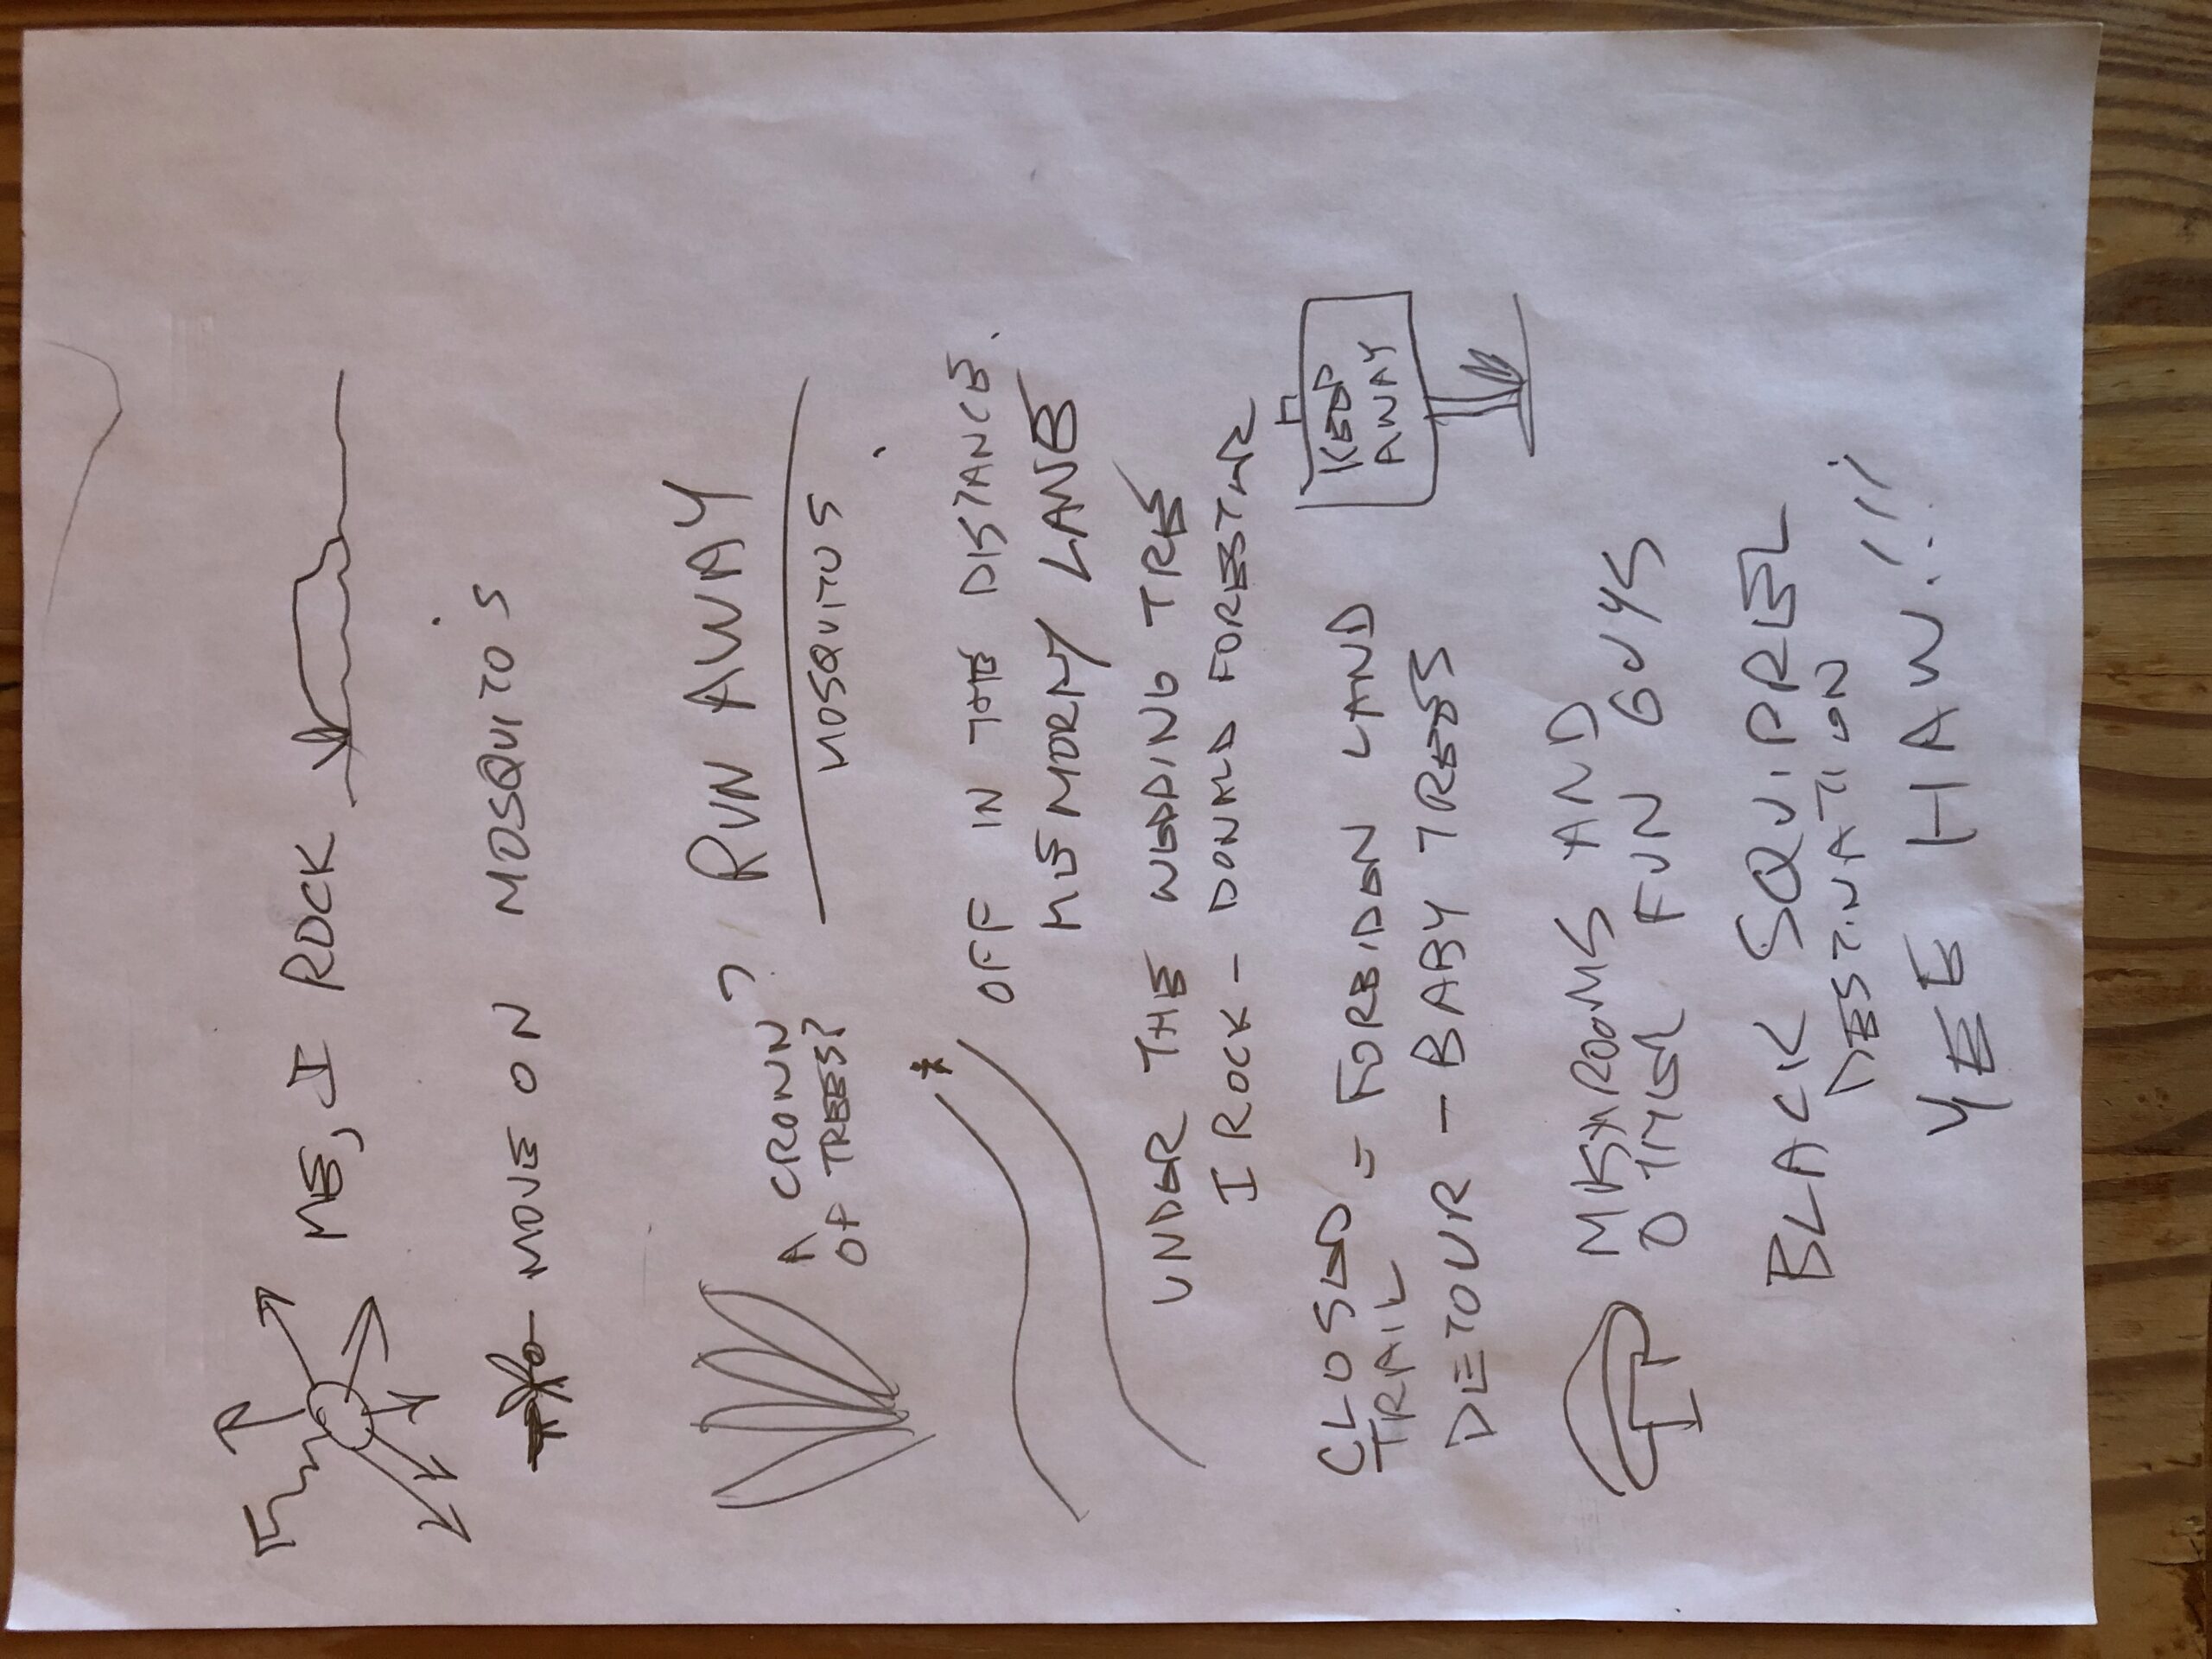 ME, I ROCK
MOVE ON MOSQUITO'S
RUN AWAY
A CROWN
OF TREES?
MOSQUITOS
OFF IN THE DISTANCE.
MEMORY LANE
UNDER THE WEDDING TREE
I ROCK - DONALD FORESTER
CLOSED = FORBIDEN LAND
TRAIL
KEEP
AWAY
DETOUR - BABY TREES
AND
OTHER FUN GUYS
BLACK SQUIRREL
DESTINATION
YEE HAW!!!